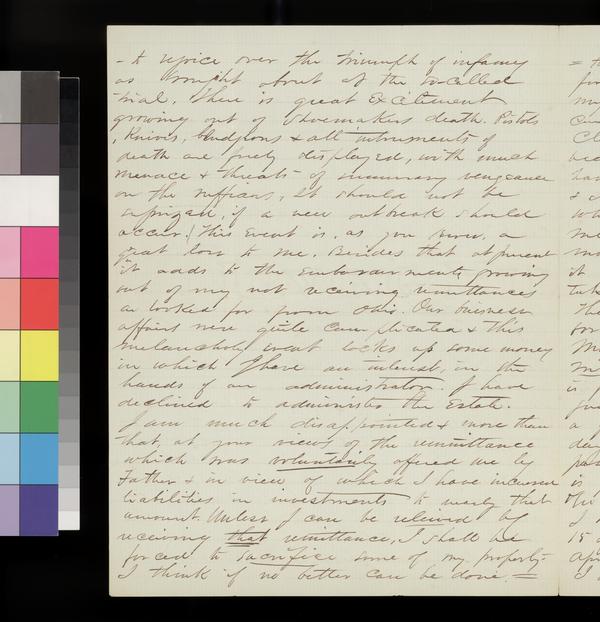 - to rejoice over the triumph of infamy
as brought about at the so-called
trial. There is great Excitement
growing out of Shoemakers death. Pistols
, Knives, bludgeons & all intruments of
death are freely displayed, with much
menace & threats of summary vengeance
on the ruffians. It should not be
surprized, if a new outbreak should
occur! This Event is, as you know, a
great loss to me. Besides that at present
it adds to the Embarrassments growing
out of my not receiving remittances
as looked for from Ohio. Our business
affairs were quite complicated & this
melancholy event locks up some money
in which I have an interest, in the
hands of an administrator. I have
declined to administer the Estate.
I am much disappointed & more than
that, at your views of the remittance
which was voluntarily offered me by
Father & in view of which I have incurred
liabilities in investments to nearly that
amount. Unless I can be relieved by
receiving that remittance, I shall be
forced to sacrifice some of my property-
I think if no better can be done. =